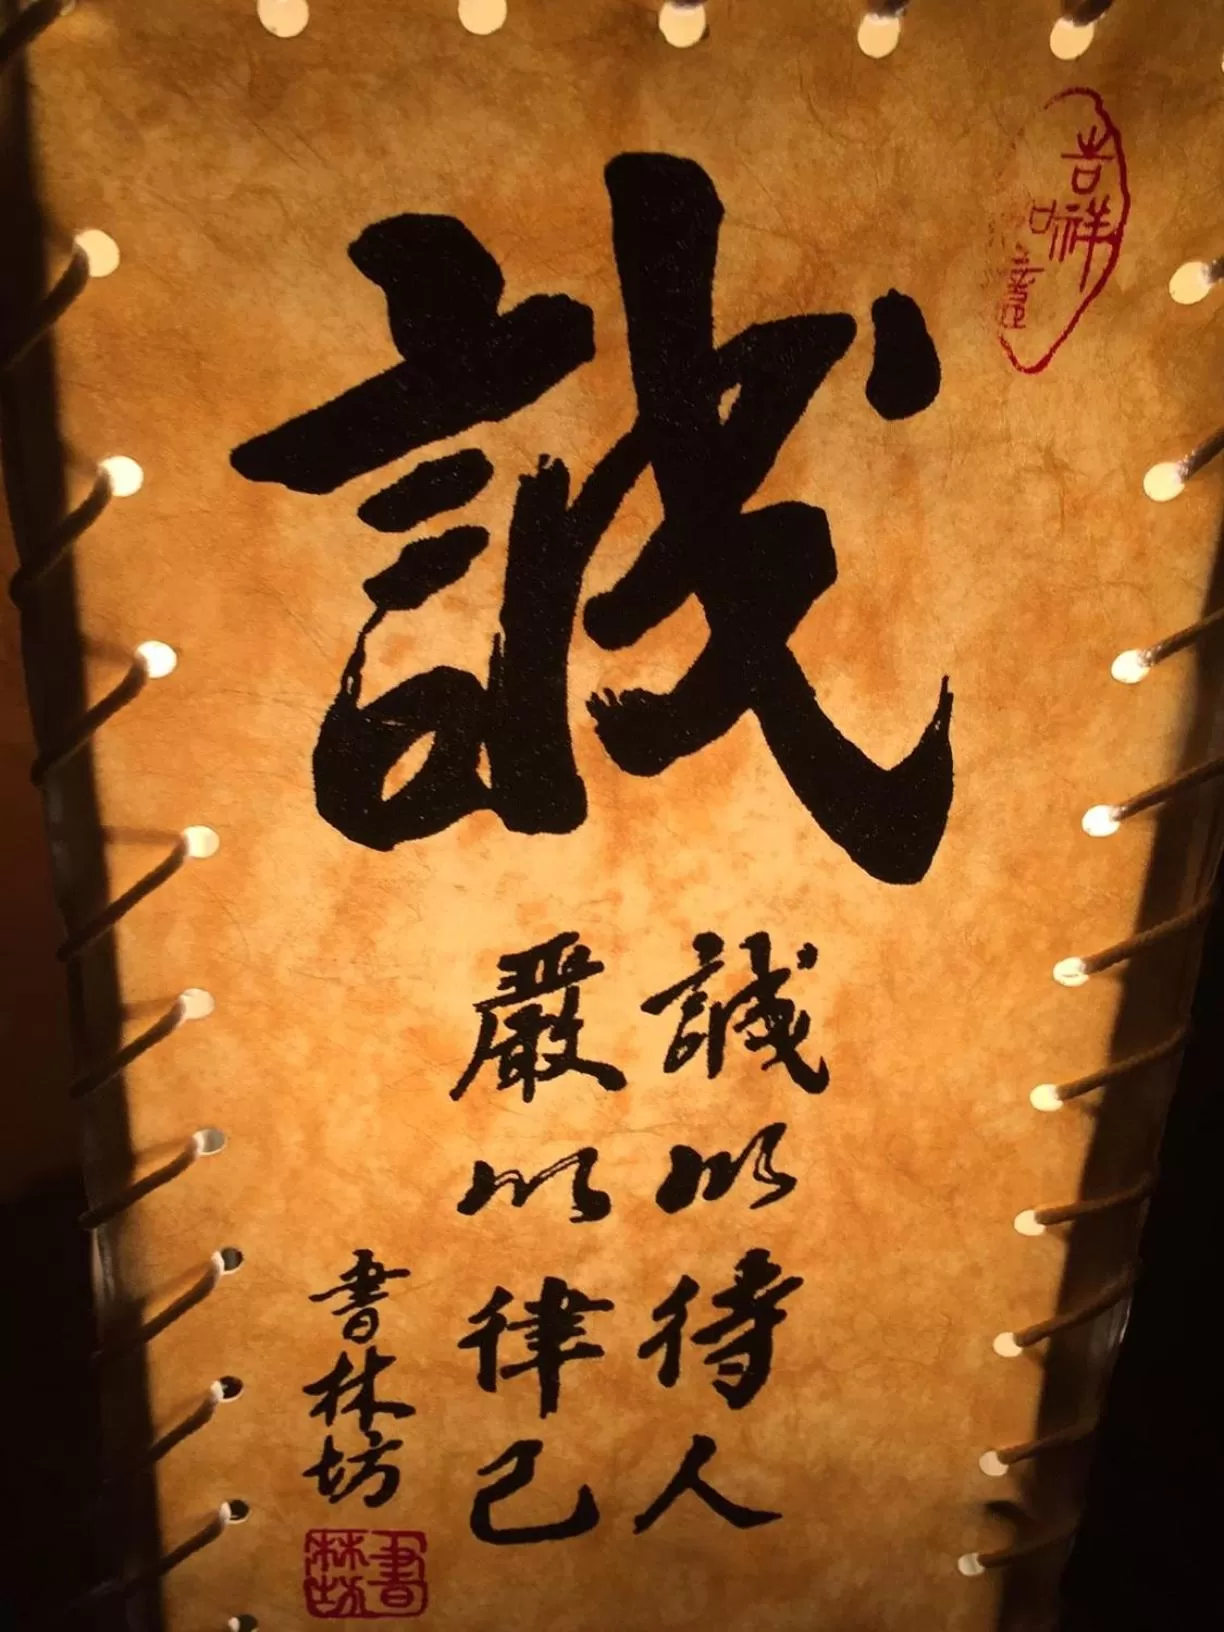 誠
誠以待人
嚴以律己
書林坊
吉祥
書林坊